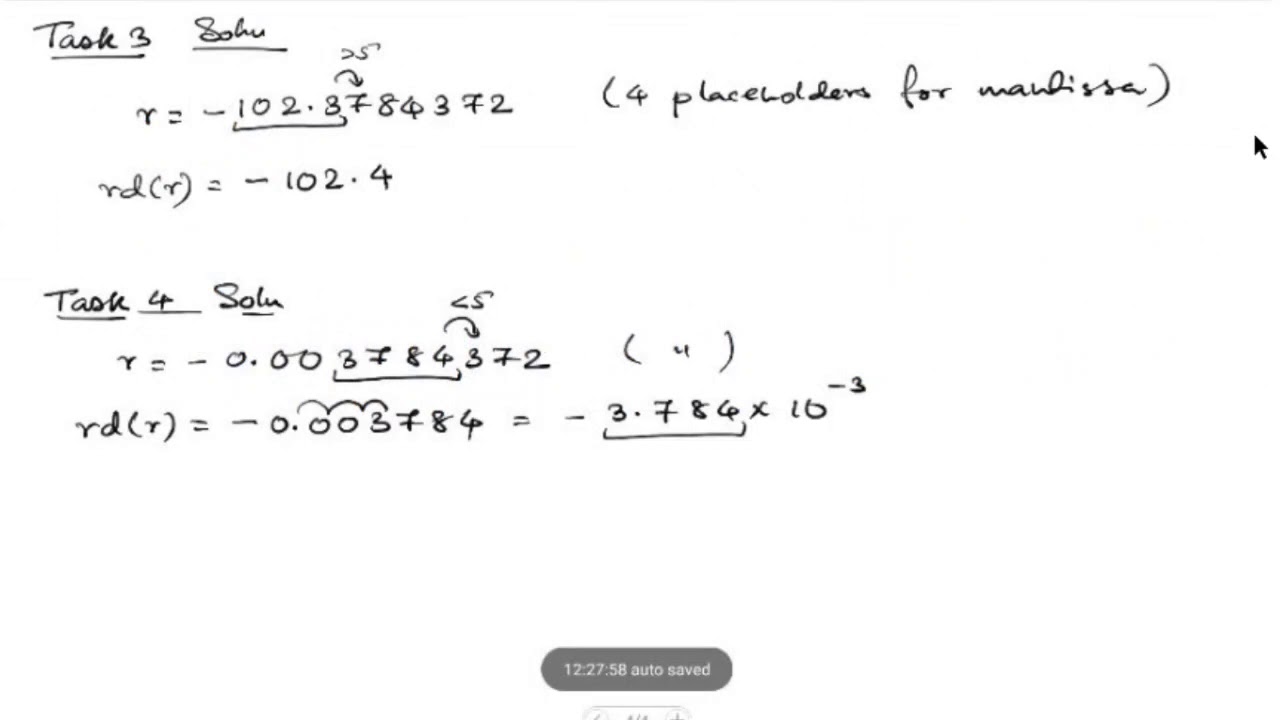 Task 3 Solu
>5
r = -102.3784372 (4 placeholders for mantissa)
rd(r) = -102.4
Task 4 Solu
<5
r = -0.003784372 ( " )
rd(r) = -0.003784 = -3.784 × 10⁻³
12:27:58 auto saved